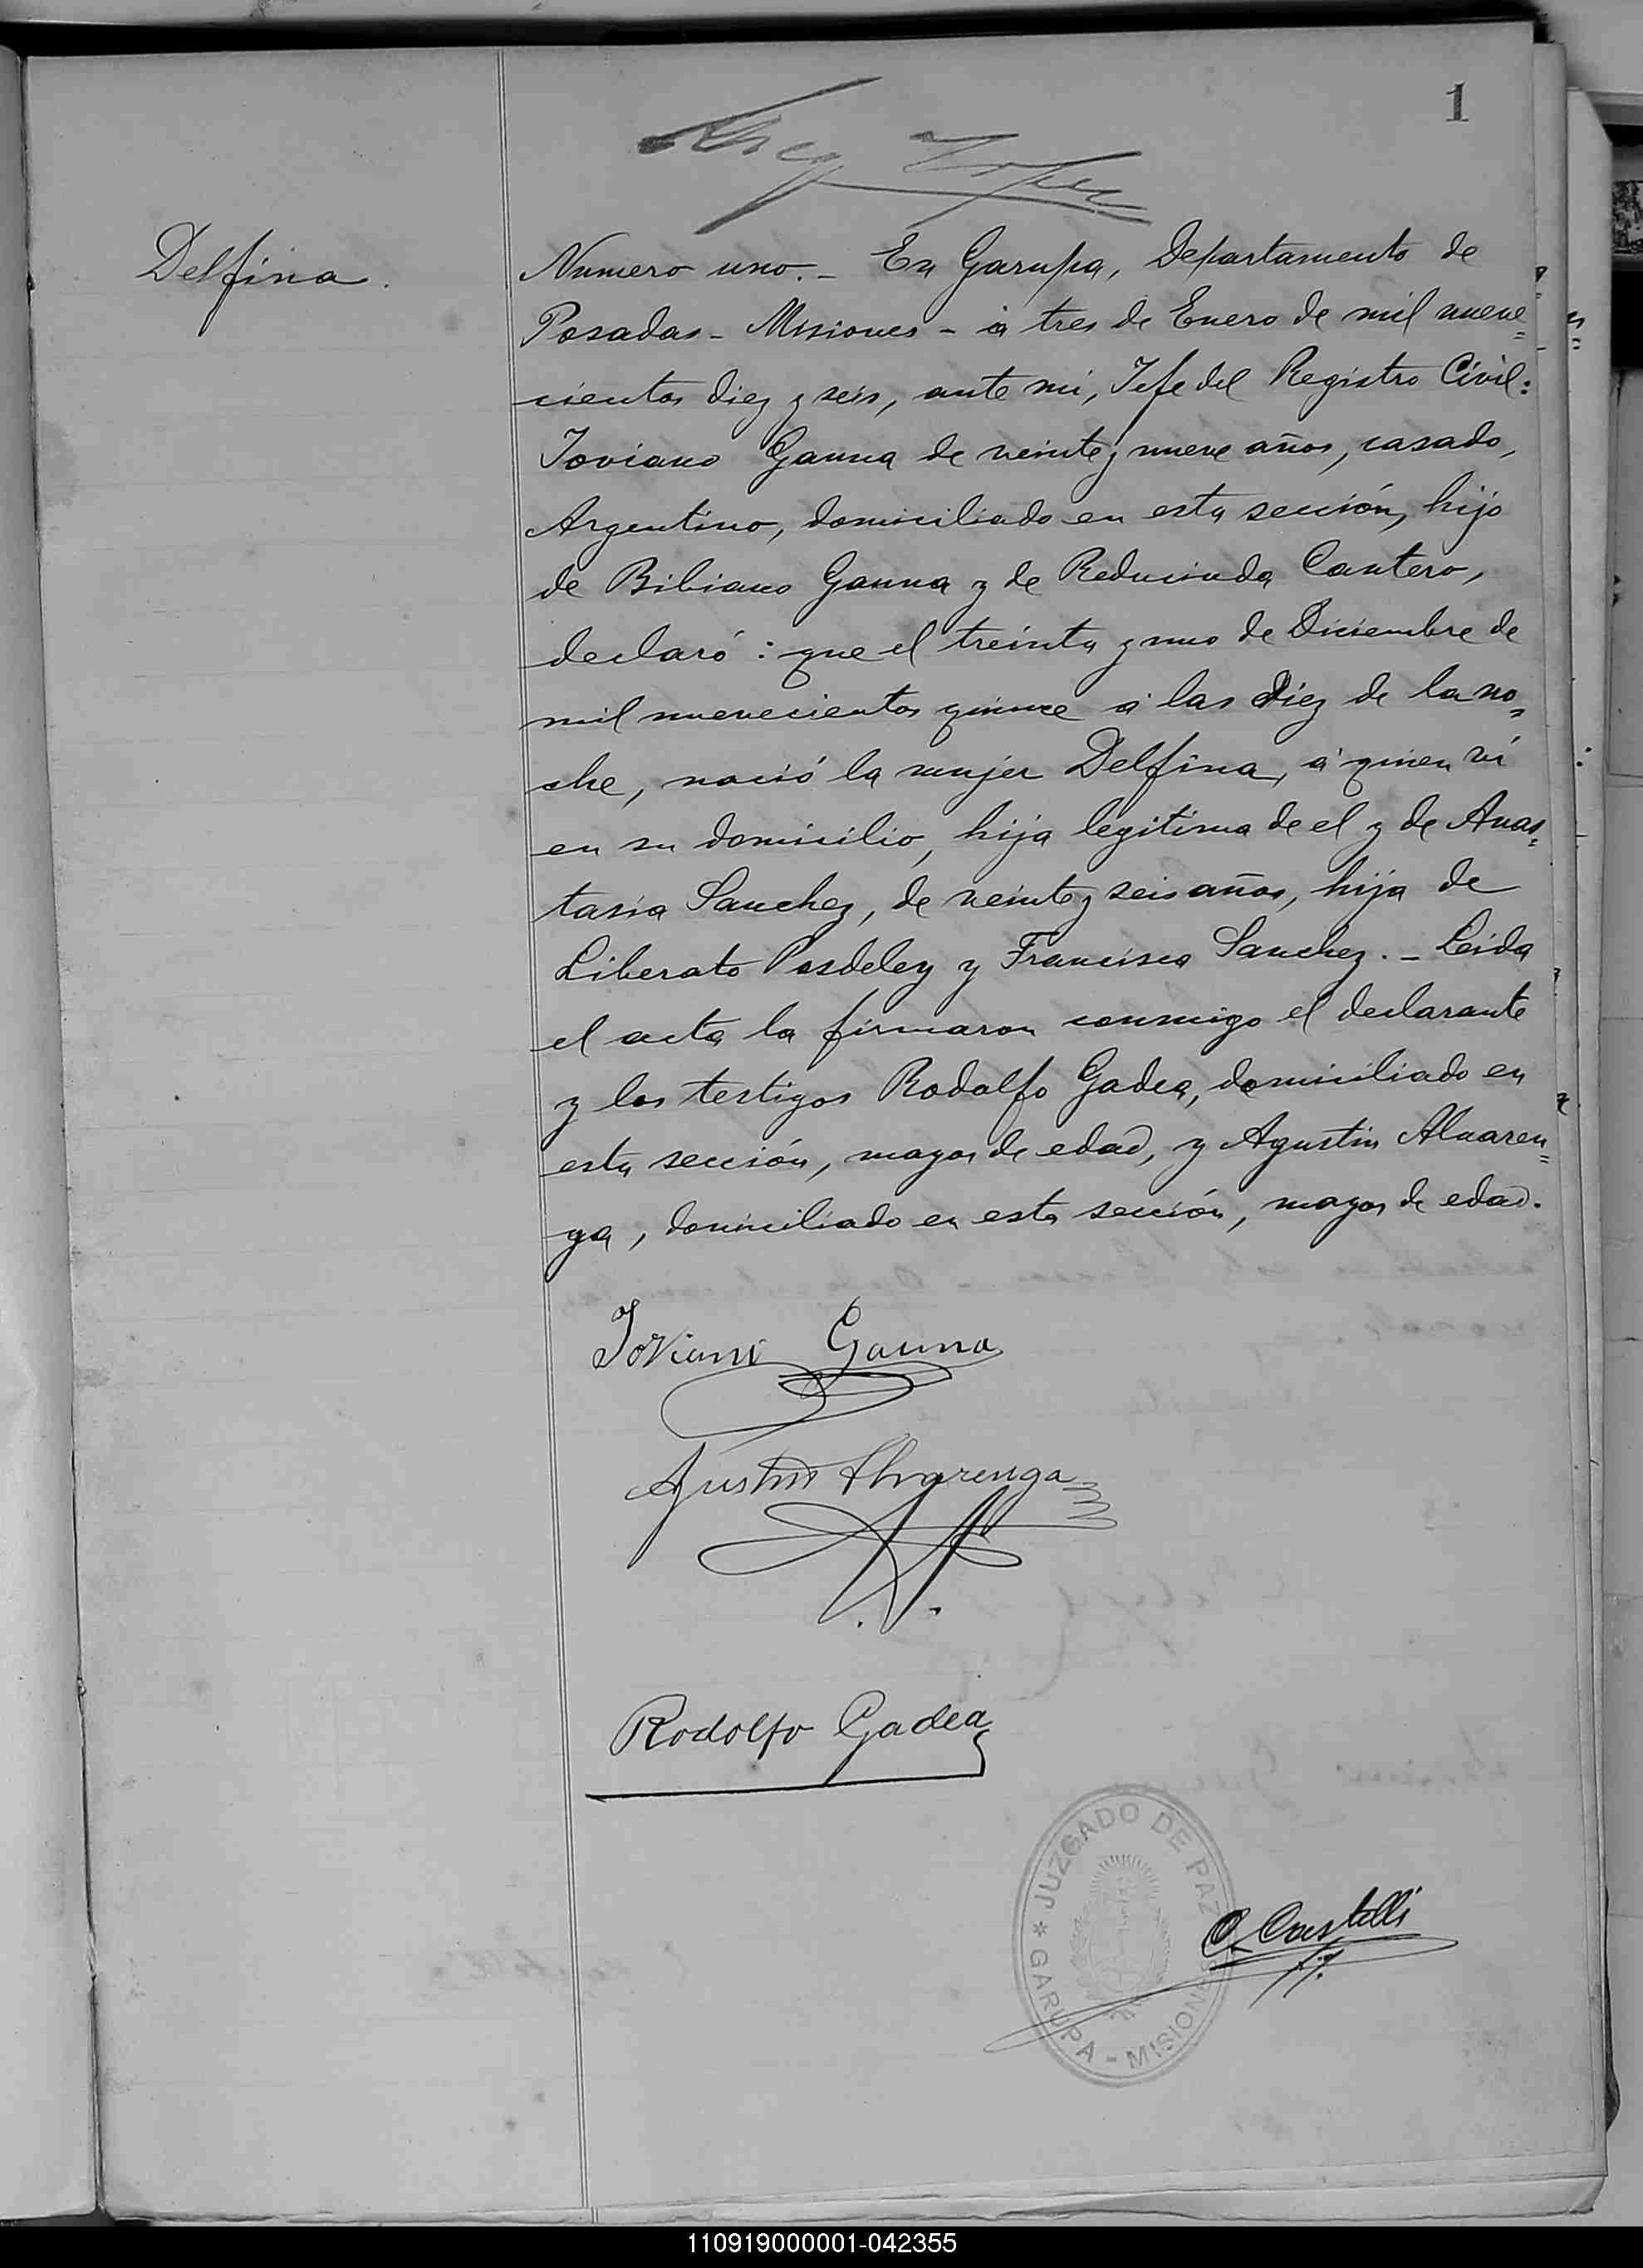 1
Delfina.
Numero uno. - En Garupa, Departamento de
Posadas - Misiones - á tres de Enero de mil nueve=
cientos diez y seis, ante mi, Jefe del Registro Civil:
Joviano Gauna de veinte y nueve años, casado,
Argentino, domiciliado en esta sección, hijo
de Bibiano Gauna y de Reducinda Cantero,
declaró: que el treinta y uno de Diciembre de
mil nuevecientos quince á las diez de la no=
che, nació la mujer Delfina, á quien ví
en su domicilio, hija legitima de el y de Anas=
tasia Sanchez, de veinte y seis años, hija de
Liberato Posdeley y Francisca Sanchez. - Leida
el acta la firmaron conmigo el declarante
y los testigos Rodolfo Gadea, domiciliado en
esta sección, mayor de edad, y Agustin Alvaren=
ga, domiciliado en esta sección, mayor de edad.
Joviano Gauna
Agustin Alvarenga
Rodolfo Gadea
JUZGADO DE PAZ
* GARUPA - MISIONES
C. Castelli
110919000001-042355